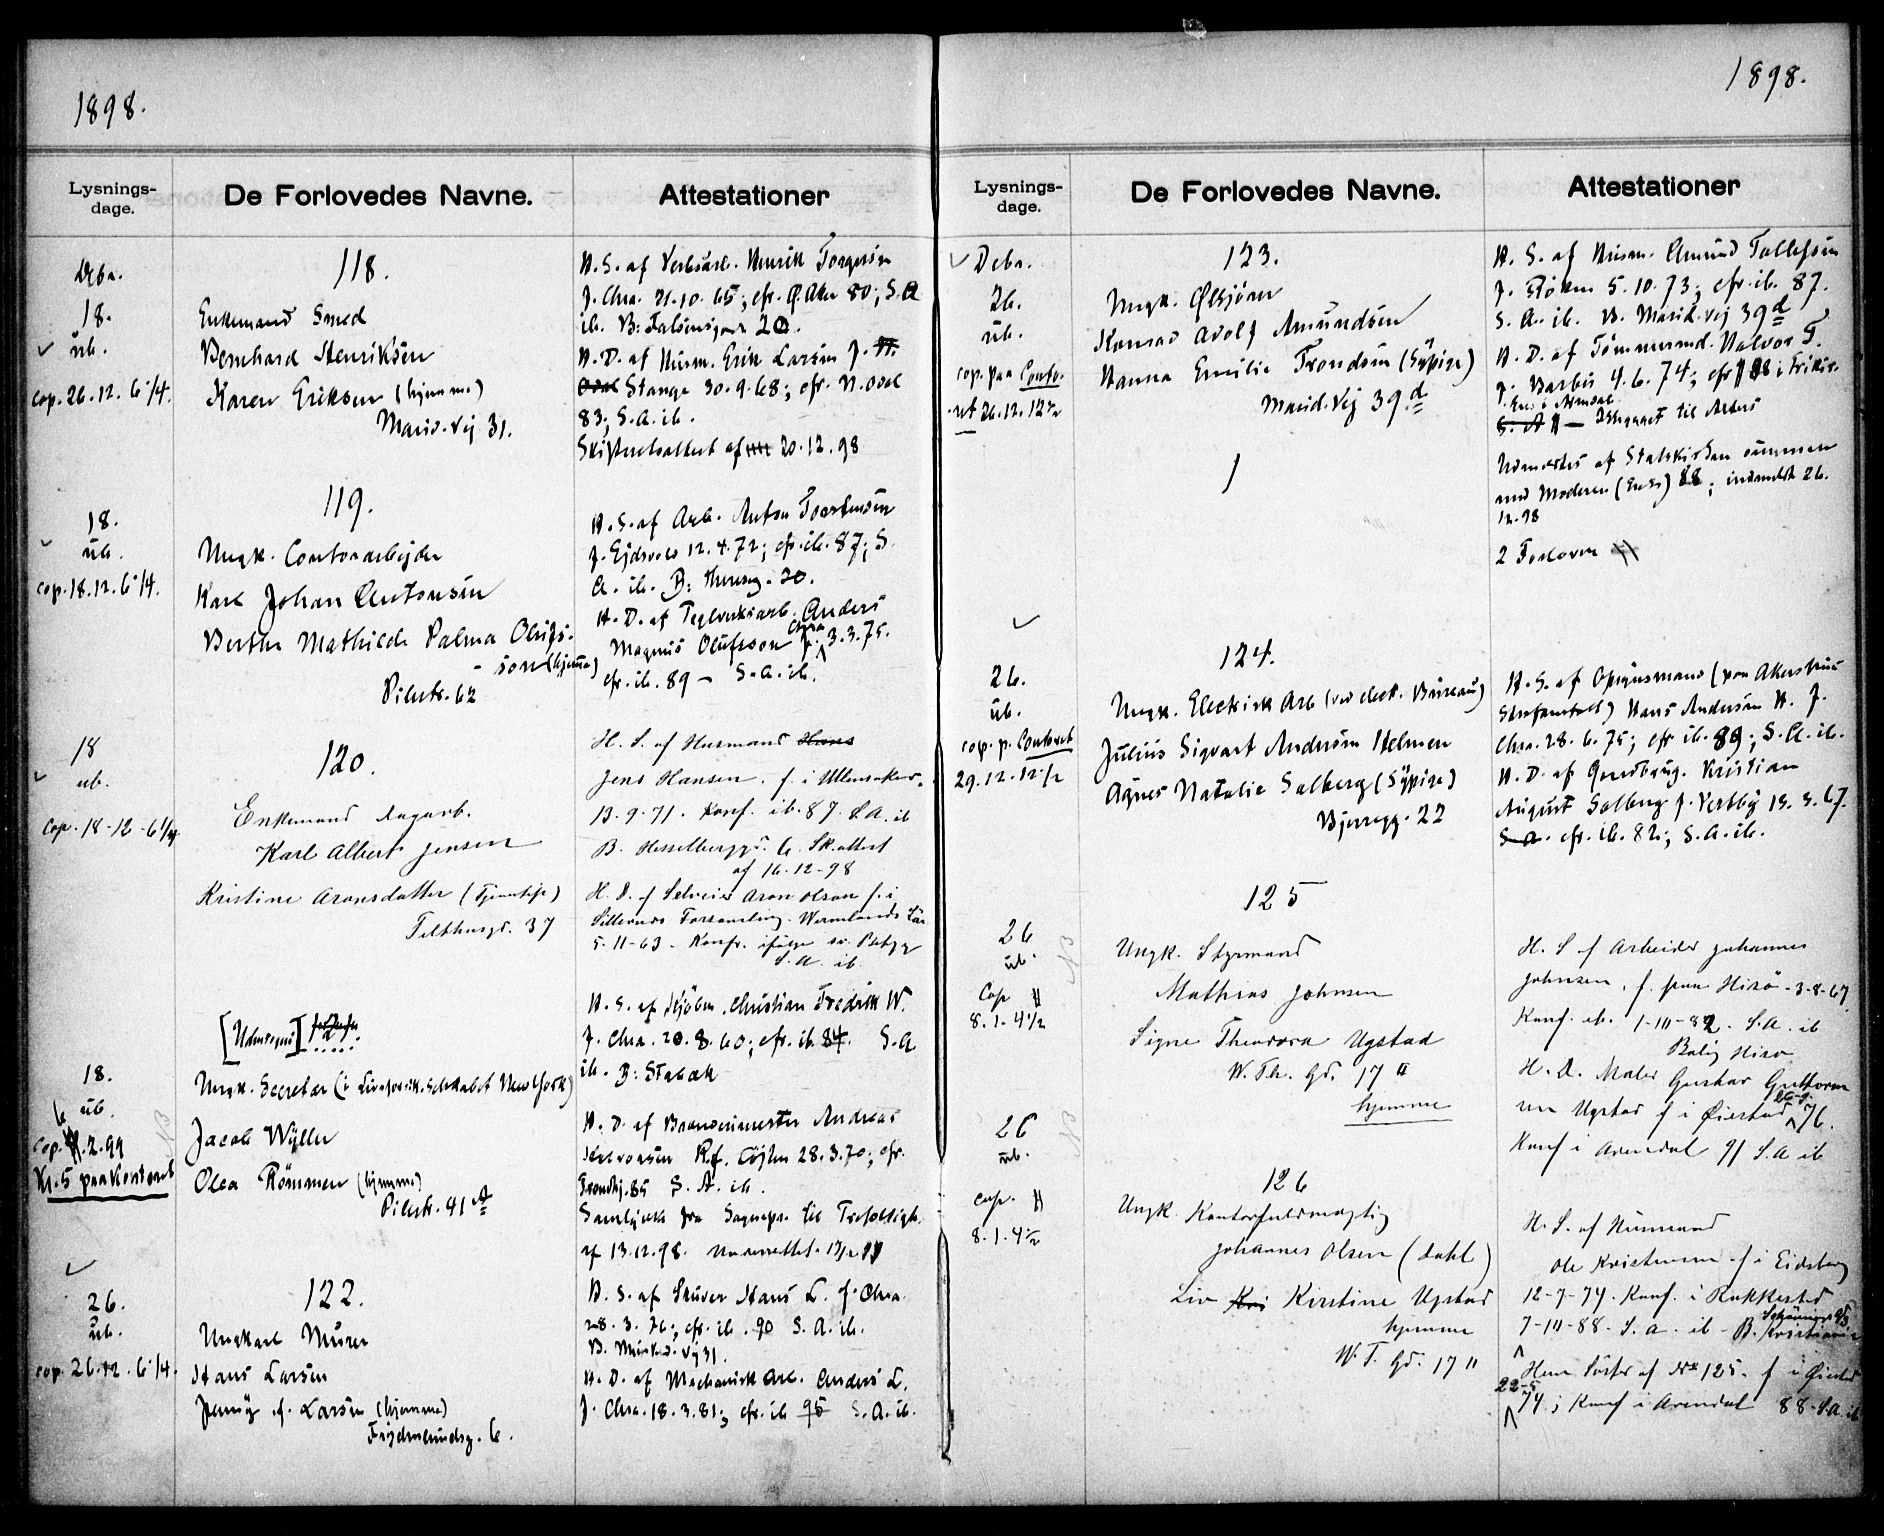 1898.
Lysnings-
dage.
De Forlovedes Navne.
Attestationer
Debr.
18.
ub.
cop. 26.12. 6 1/4.
118.
Enkemand Smed
Bernhard Henriksen
Karen Eriksen (hjemme)
Marid.vej 31.
H. S. af Henrik Torgersen
f. Chra. 21.10.65; cfr. Ø. Aker 80; S. A
ib. B: 20.
H. D. af Husm. Erik Larsen f. N.
Odal Stange 30.9.68; cfr. N. Odal
83; S. A. ib.
Skifteretsattest af 20.12.98
18.
ub.
cop. 18.12. 6 1/4.
119.
Ungk. Contorarbejder
Karl Johan Antonsen
Berthe Mathilde Palma Olufs-
son (hjemme)
Pilestr. 62
H. S. af Arb. Anton Torstensen
f. Ejdsvold 12.4.72; cfr. ib. 87; S.
A. ib. B: Thereseg. 20.
H. D. af Teglverksarb. Anders
Magnus Olufsson f. Chra 3.3.75.
cfr. ib. 89 – S. A. ib.
18
ub.
Cop. 18-12-6 1/4
120.
Enkemand Dagarb.
Karl Albert Jensen
Kristine Aronsdatter (Tjenestep)
Telthusgd. 37
H. S. af Husmand Hans
Jens Hansen, f. i Ullensaker
13-9-71. Konf. ib. 87. S. A. ib
B. Hesselbergsgd. 6. Sk.attest
af 16-12-98
H. D. af Aron Olson f. i
Sillerud Forsamling. Wermlands Län
5-11-63 – Konfr. ifølge sv.
S. A. ib.
18.
ub.
cop. 6.2.99
Kl. 5 paa Kontoret
Ungk. Secretær (i Livsforsik. Selskabet New York)
Jacob Wyller
Olea Rømmen (hjemme)
Pilestr. 41 A
H. S. af Kjøbm. Christian Fredrik W.
f. Chra. 20.8.60; cfr. ib. 84. S. A
ib. B: Stabæk
H. D. af Brandmester Andreas
28.3.70; cfr.
Trondhj. 85 S. A. ib.
Samtykke fra Sognepr. til Trefoldigh.
af 13.12.98.
26.
ub.
cop. 26.12. 6 1/4.
122.
Ungkarl Murer
Hans Larsen
Jenny f. Larsen (hjemme)
Frydenlundsg. 6.
H. S. af Skriver Hans L. f. Chra.
28.3.76; cfr. ib. 90 S. A. ib.
B. Marid. vej 31.
H. D. af Mechanisk Arb. Anders L.
f. Chra. 18.3.81; cfr. ib 95 S. A. ib.
1898.
Lysnings-
dage.
De Forlovedes Navne.
Attestationer
Debr.
26.
ub.
cop. paa Conto-
ret 26.12. 12 1/2
123.
Ungk. Ølkjører
Konrad Adolf Amundsen
Hanna Emilie Trondsen (Sypige)
Marid. Vej 39 d
H. S. af Husm. Amund Tollefsen
f. Røken 5.10.73; cfr. ib. 87.
S. A. ib. B. Marid. vej 39 d
H. D. af Tømmermd. Halvor T.
f. Barbu 4.6.74; cfr
S. A
Udmeldtes af Statskirken sammen
med Moderen (Enke) 88; indmeldt 26.
12.98
2 Forlovere
26.
ub.
cop. p. Contoret
29.12. 12 1/2
124.
Ungk. Electrisk Arb (ved elect. Bureau)
Julius Sigvart Andersen Helmen
Agnes Natalie Solberg (Sypige)
Bjerregg. 22
H. S. af Opsynsmand (paa Akershus
Strafanstalt) Hans Andersen H. f.
Chra. 28.6.75; cfr. ib. 89; S. A. ib.
H. D. af Gaardbrug. Kristian
August Solberg f. Vestby 19.3.67.
S. A. cfr. ib. 82; S. A. ib.
26
ub.
Cop
8.1. 4 1/2
NB
125
Ungk. Styrmand
Mathias Johnsen
Signe Theodora Ugstad
W. Th. Gd. 17 II
hjemme
H. S. af Arbeider Johannes
Johnsen, f. paa Hisø – 3-8-67
Konf. ib. 1-10-82. S. A. ib
Bolig Hisø
H. D. Maler Gustav Guttorm
Ugstad f i Øiestad 76.
Konf i Arendal 91 S. A ib
26
ub.
cop.
8.1. 4 1/2
NB
126
Ungk. Kontorfuldmægtig
Johannes Olsen (Dahl)
Liv Kri Kirstine Ugstad
hjemme
W. T. Gd. 17 II
H. S. af Husmand
Ole Kristensen f. i Eidsberg
12-7-74. Konf. i Rakkestad
7-10-88. S. A. ib – B. Kristiania
Hun Søster af No 125. f i Øiestad
22-5
74; Konf i Arendal 88 – S. A. ib